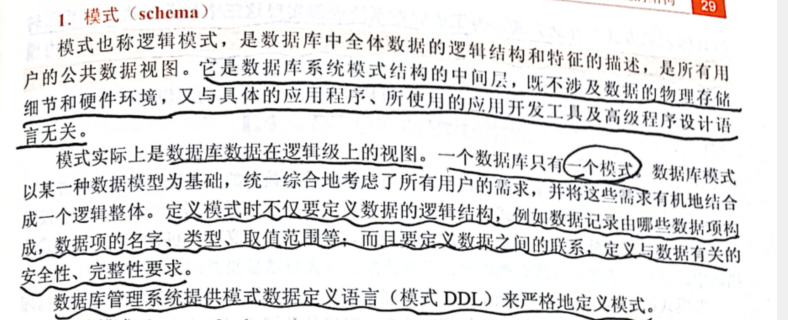 29
1. 模式（schema）
模式也称逻辑模式，是数据库中全体数据的逻辑结构和特征的描述，是所有用
户的公共数据视图。它是数据库系统模式结构的中间层，既不涉及数据的物理存储
细节和硬件环境，又与具体的应用程序、所使用的应用开发工具及高级程序设计语
言无关。
模式实际上是数据库数据在逻辑级上的视图。一个数据库只有一个模式。数据库模式
以某一种数据模型为基础，统一综合地考虑了所有用户的需求，并将这些需求有机地结合
成一个逻辑整体。定义模式时不仅要定义数据的逻辑结构，例如数据记录由哪些数据项构
成，数据项的名字、类型、取值范围等；而且要定义数据之间的联系，定义与数据有关的
安全性、完整性要求。
数据库管理系统提供模式数据定义语言（模式 DDL）来严格地定义模式。